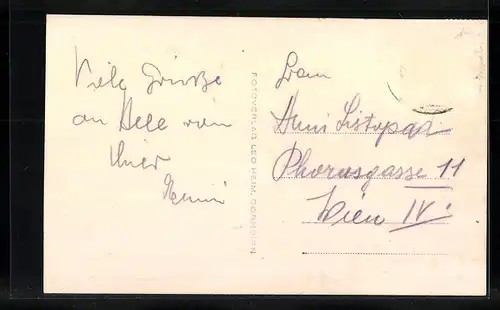 Viele Grüße
an Alle von
Ihrer
FOTOVERLAG LEO HEIM, DORNBIRN
Frau
Anni Listopad
Phorusgasse 11
Wien IV.